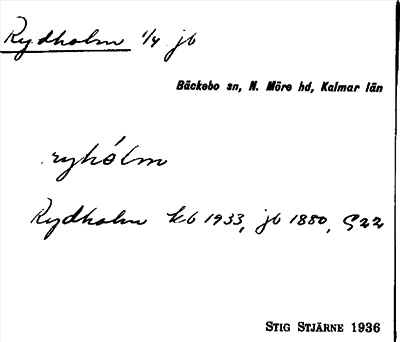 Rydholm 1/4 jb
Bäckebo sn, N. Möre hd, Kalmar län
ryhólm
Rydholm kb 1933, jb 1880, S22
STIG STJÄRNE 1936